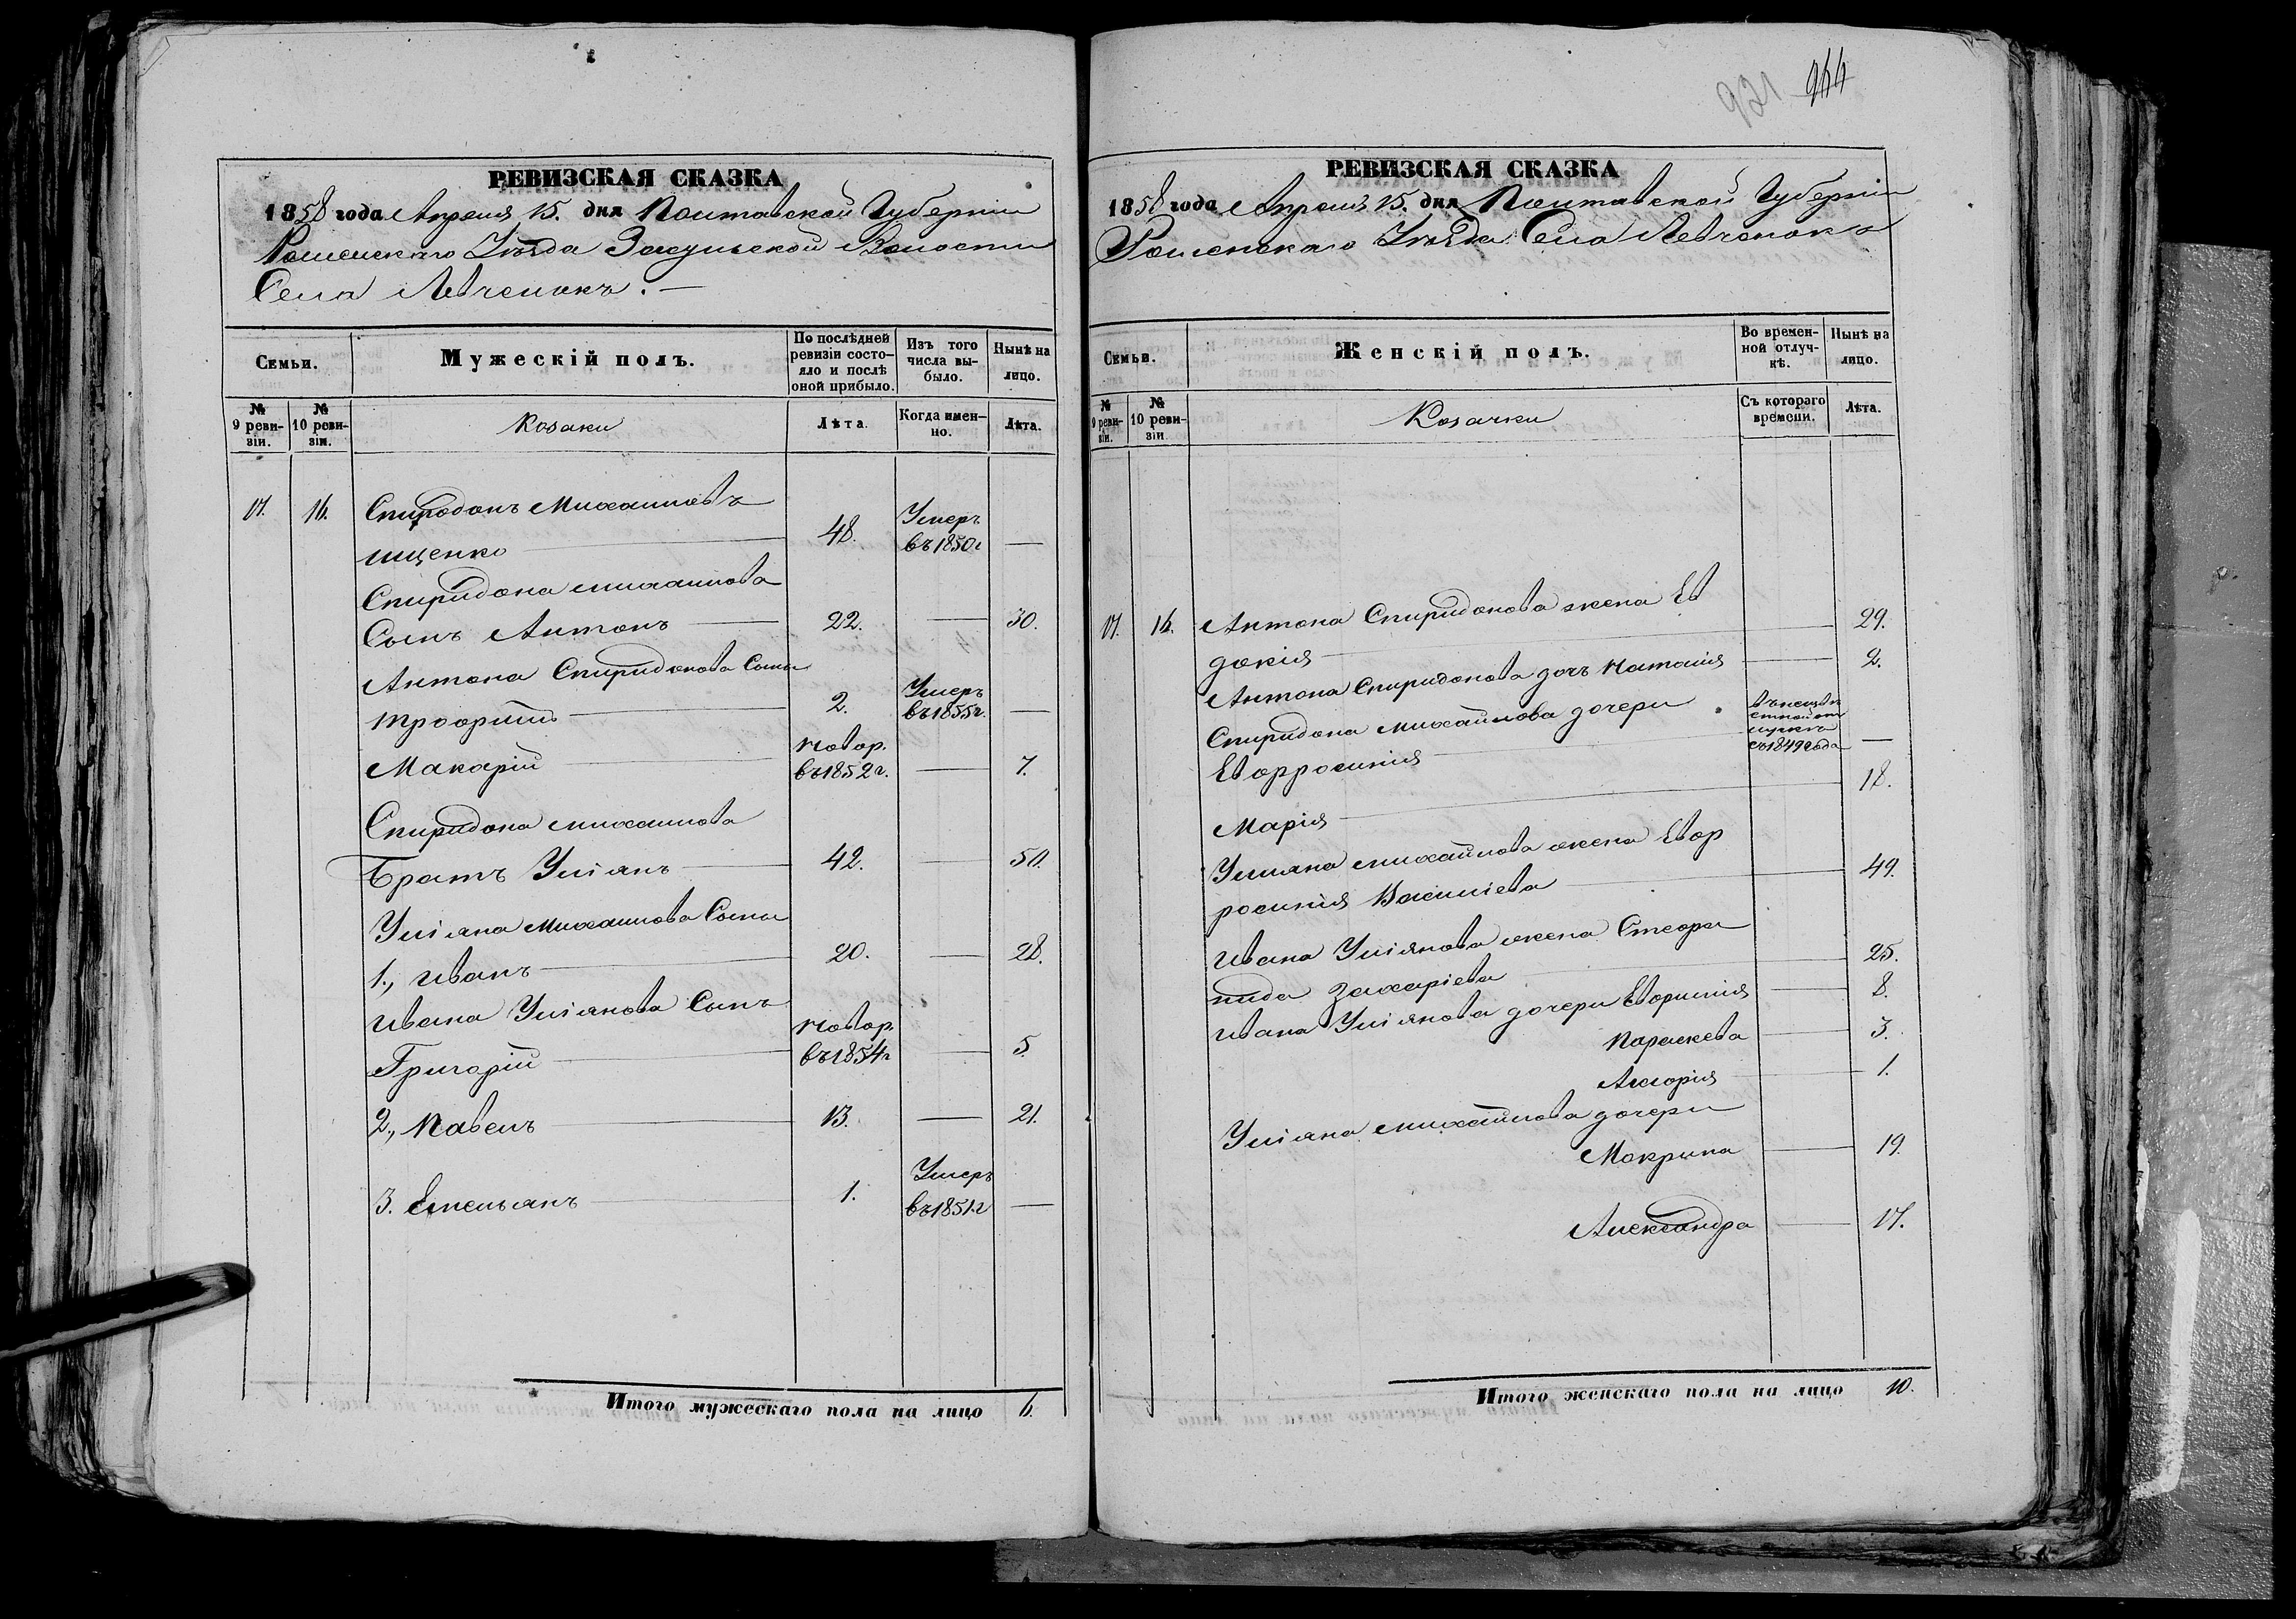 РЕВИЗСКАЯ СКАЗКА
1858 года Апреля 15. дня Полтавской Губерніи
Роменскаго Уѣзда Засульской Волости
Села Левченокъ. —
Семьи.
Мужескій полъ.
По послѣдней ревизіи состо-
яло и послѣ
оной прибыло.
Изъ того
числа вы-
было.
Нынѣ на
лицо.
№
9 реви-
зіи.
№
10 реви-
зіи.
Козаки
Лѣта.
Когда имен-
но.
Лѣта.
17. 16. Спиридонъ Михайловъ
ищенко 48. Умеръ въ 1850 г —
Спиридона михайлова
Сынъ Антонъ 22. — 30.
Антона Спиридонова Сыны
Трофимъ 2. Умеръ въ 1855 г. —
Макарій новор. въ 1852 г. — 7.
Спиридона михайлова
Братъ Уліянъ 42. — 50.
Уліяна Михайлова Сыны
1., иванъ 20. — 28.
ивана Уліянова Сынъ
Григорій новор. въ 1854 г — 5.
2., Павелъ 13. — 21.
3. Емельянъ 1. Умеръ въ 1851 г —
Итого мужескаго пола на лицо 6.
921 944
РЕВИЗСКАЯ СКАЗКА
1858 года Апреля 15. дня Полтавской Губерніи
Роменскаго Уѣзда Села Левченокъ
Семьи.
Женскій полъ.
Во времен-
ной отлуч-
кѣ.
Нынѣ на
лицо.
№
9 реви-
зіи.
№
10 реви-
зіи
Козачки
Съ котораго
времени.
Лѣта.
17. 16. Антона Спиридонова жена Ев
докія — 29.
Антона Спиридонова дочь Наталія — 2.
Спиридона Михайлова дочери
Евфросинія въ неизвѣ стной от лучкѣ съ 1849 года —
Марія — 18.
Уліяна михайлова жена Евф
росинія Василіева — 49.
ивана Уліянова жена Стефа
нида Захаріева — 25.
ивана Уліянова дочери Евфимія — 8.
Параскева — 3.
1.
Уліяна михайлова дочери
Макрина — 19.
Александра — 17.
Итого женскаго пола на лицо 10.